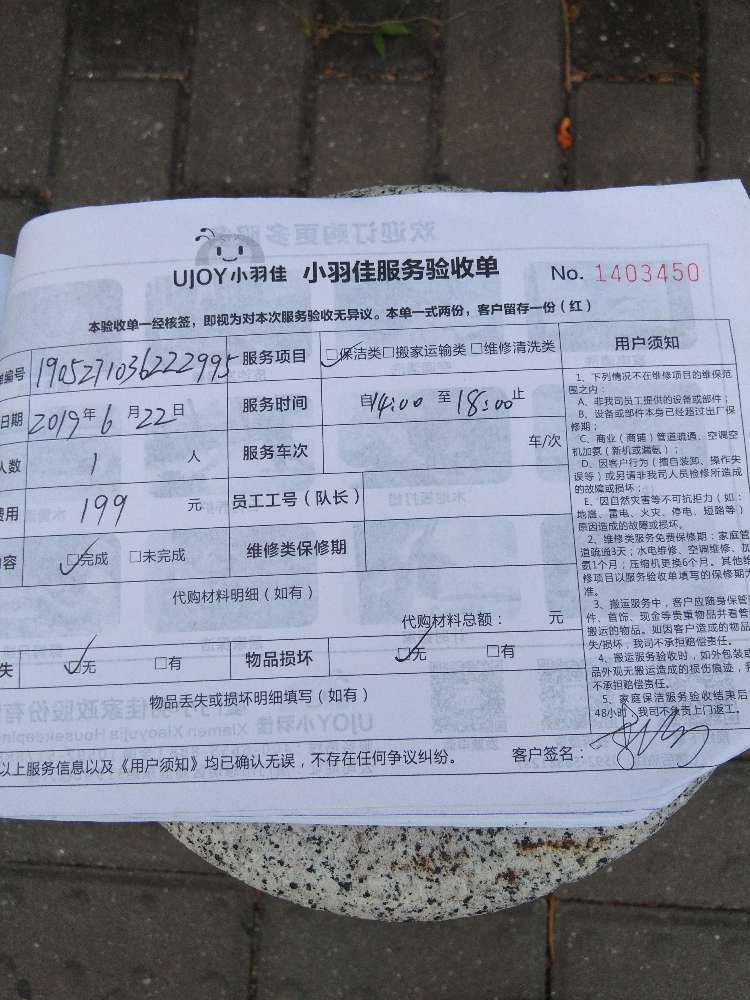 UJOY小羽佳 小羽佳服务验收单 No. 1403450
本验收单一经核签，即视为对本次服务验收无异议。本单一式两份，客户留存一份（红）
编号 190527103622995 服务项目 □保洁类□搬家运输类□维修清洗类
日期 2019年6月22日 服务时间 自14:00至18:00止
人数 1 人 服务车次 车/次
费用 199 元 员工工号（队长）
内容 □完成 □未完成 维修类保修期
代购材料明细（如有）
代购材料总额： 元
失 □无 □有 物品损坏 □无 □有
物品丢失或损坏明细填写（如有）
以上服务信息以及《用户须知》均已确认无误，不存在任何争议纠纷。 客户签名：
用户须知
1、下列情况不在维修项目的维保范
围之内：
A、非我司员工提供的设备或部件；
B、设备或部件本身已经超过出厂保
修期；
C、商业（商铺）管道疏通、空调空
机加氨（新机或漏氨）；
D、因客户行为（擅自装卸、操作失
误等）或另请非我司人员检修所造成
的故障或损坏；
E、因自然灾害等不可抗拒力（如：
地震、雷电、火灾、停电、短路等）
原因造成的故障或损坏。
2、维修类服务免费保修期：家庭管
道疏通3天；水电维修、空调维修、加
氨1个月；压缩机更换6个月。其他维
修项目以服务验收单填写的保修期为
准。
3、搬运服务中，客户应随身保管
件、首饰、现金等贵重物品并看管
搬运的物品。如因客户造成的物品
失/损坏，我司不承担赔偿责任。
4、搬运服务验收时，如外包装或
品外观无搬运造成的损伤痕迹，我
不承担赔偿责任。
5、家庭保洁服务验收结束后
48小时，我司不负责上门返工。
欢迎订购更多服